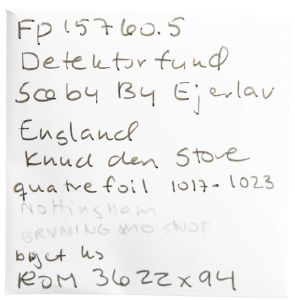 FP 15760.5
Detektorfund
Sæby By Ejerlav
England
Knud den Store
quatrefoil 1017-1023
Nottingham
BRVNING MO SNOT
bøjet hs
KOM 3622x94